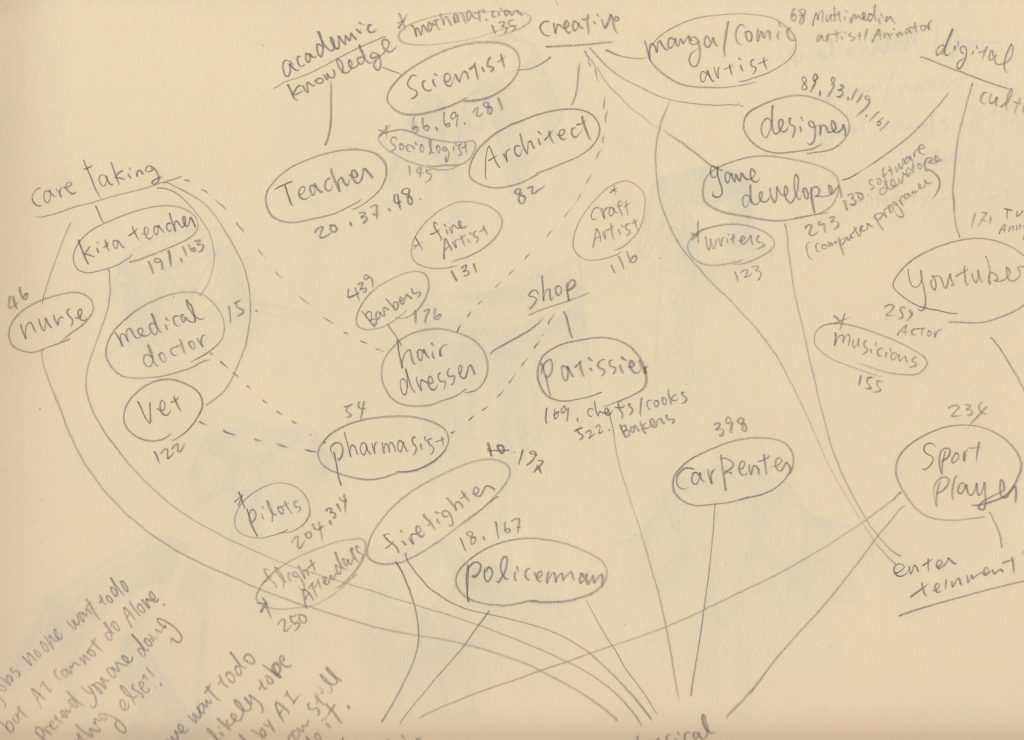 * mathmatician
135
creative
68 Multimedia
artist/Animator
academic
knowledge
Scientist
66.69.281
manga/comic
artist
digital
89,93,119,161
designer
* Sociologist
145
Architect
82
Teacher
20,37,48.
game
developer
293
130. software
developer
(computer programer)
care taking
kita teacher
191,163
* fine
Artist
131
* craft
Artist
116
* writers
123
171,
Youtuber
Actor
46
nurse
medical
doctor
15.
439
Barbers
176
hair
dresser
shop
patissier
169. chefs/cooks
522. Bakers
* musicians
155
vet
122
54
pharmasist
398
carpenter
234
Sport
player
* pilots
204,314
firefighter
192
18,167
policeman
flight
Attendass
*
250
enter
teinment
jobs no one want to do
but AI cannot do Alone.
pretend you are doing
else!!
want to do
likely to be
by A.I.
still
do it.